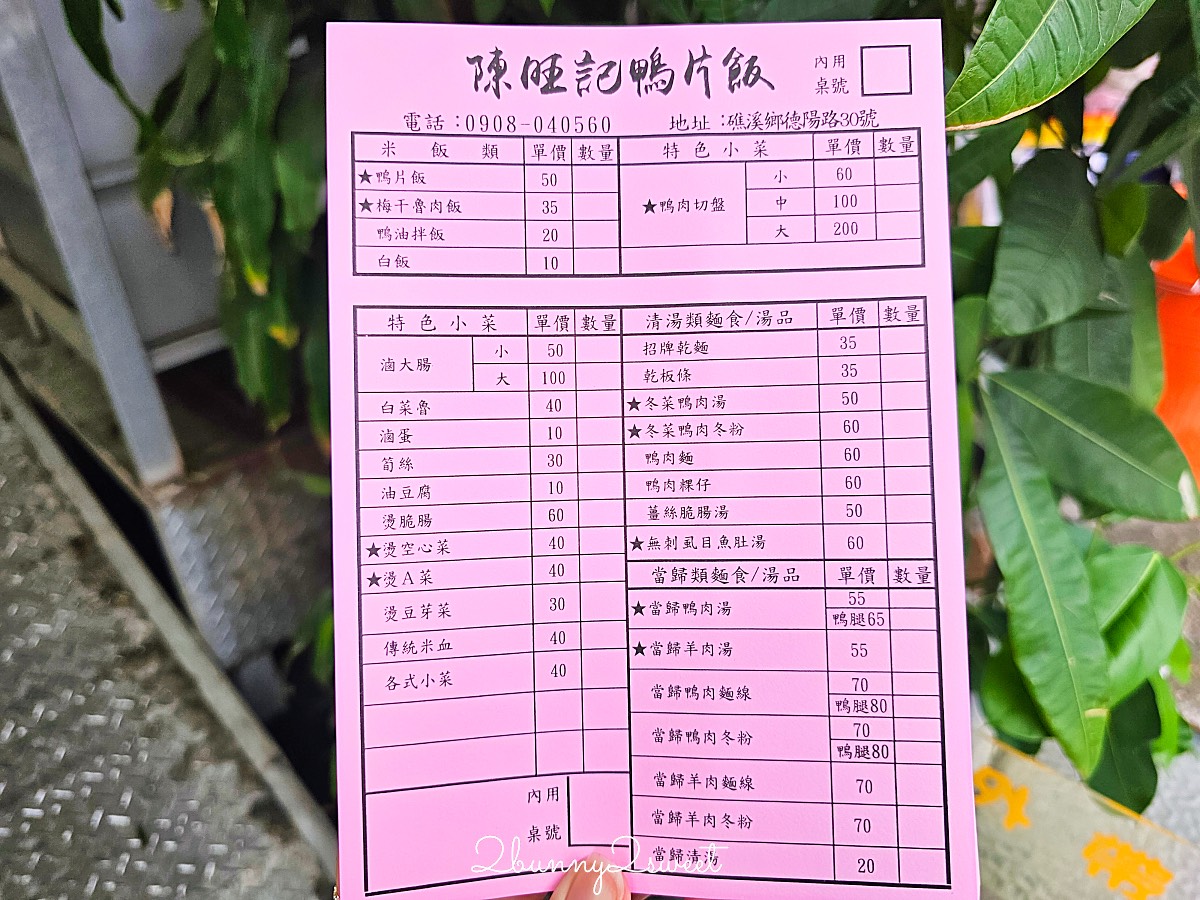 陳旺記鴨片飯
內用
桌號
電話:0908-040560 地址:礁溪鄉德陽路30號
米飯類 單價 數量
★鴨片飯 50
★梅干魯肉飯 35
鴨油拌飯 20
白飯 10
特色小菜 單價 數量
★鴨肉切盤 小 60
中 100
大 200
特色小菜 單價 數量
滷大腸 小 50
大 100
白菜魯 40
滷蛋 10
筍絲 30
油豆腐 10
燙脆腸 60
★燙空心菜 40
★燙A菜 40
燙豆芽菜 30
傳統米血 40
各式小菜 40
內用
桌號
清湯類麵食/湯品 單價 數量
招牌乾麵 35
乾板條 35
★冬菜鴨肉湯 50
★冬菜鴨肉冬粉 60
鴨肉麵 60
鴨肉粿仔 60
薑絲脆腸湯 50
★無刺虱目魚肚湯 60
當歸類麵食/湯品 單價 數量
★當歸鴨肉湯 55
鴨腿65
★當歸羊肉湯 55
當歸鴨肉麵線 70
鴨腿80
當歸鴨肉冬粉 70
鴨腿80
當歸羊肉麵線 70
當歸羊肉冬粉 70
當歸清湯 20
2bunny2sweet